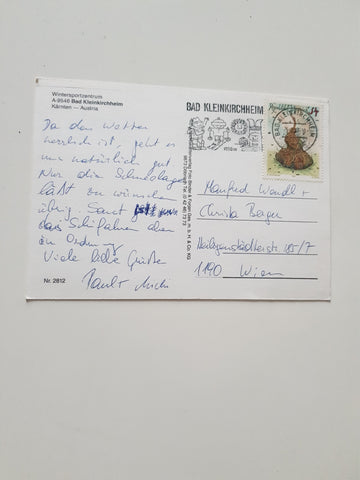 Wintersportzentrum
A-9546 Bad Kleinkirchheim
Kärnten – Austria
Da das Wetter
herrlich ist, geht es
uns natürlich gut
Nur die Schneelage
läßt zu wünschen
übrig. Sonst
das Schifahren aber
in Ordnung
Viele liebe Grüße
Michi
Nr. 2812
BAD KLEINKIRCHHEIM
Manfred Wandl +
Christa Berger
Heiligenstädterstr
1190 Wien